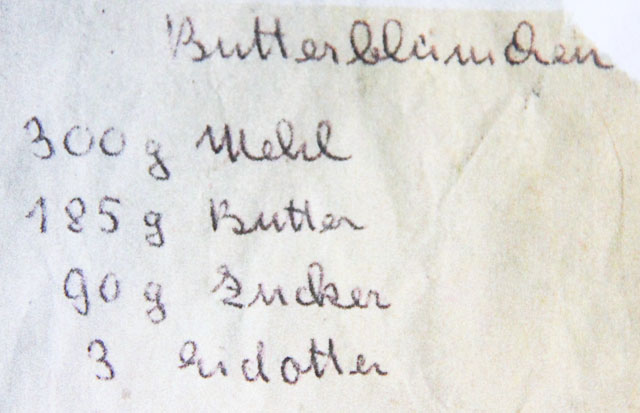 Butterblümchen
300 g Mehl
185 g Butter
90 g Zucker
3 Eidotter